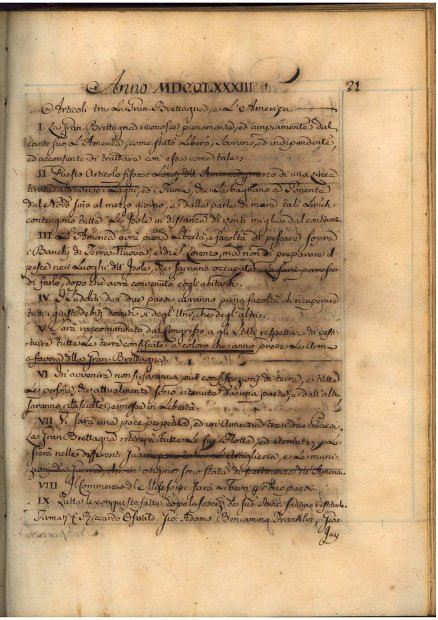 Anno MDCCLXXXIII
21
Articoli tra La Gran Brettagna, e L'America
I. La Gran Brettagna riconosce pienamente, ed ampiamente dal
canto suo L'America, come stato Libero, Sovrano, ed independente,
ed acconsente di trattare con esso come tale.
II Questo Articolo Limiti dell'America
e Fiumi, che La bagnano a Ponente
dal Nord sino al mezzo giorno, e dalla parte di mare tali Limiti
contengono tutte Le Isole in distanza di venti miglia dal continente.
III L'America avrà piena Libertà, e facoltà di pescare sopra
i Banchi di Terra Nuova, e di S. Lorenzo, ma non di preparare il
pesce nei Luoghi dell'Isole, che saranno occupati
di farlo, dopo che avrà convenuto cogli abitanti.
IV. I sudditi dei due paesi avranno piena facoltà di ricuperare
tutti i giusti debiti degl'Uni, che degl'altri.
V. Sarà raccomandato dal Congresso a gli Stati respettivi di resti-
tuire tutte Le terre confiscate a coloro che anno preso Le Armi
a favore della Gran Brettagna
VI In avvenire non si faranno più confiscazioni di terre, e tutte
Le persone, che attualmente sono ritenute
saranno rilasciate, e messe in Libertà.
VII Vi sarà una pace perpetua, ed tra i due Paesi.
La Gran Brettagna ritirerà tutte Le sue Flotte, ed Armate, e La-
scerà nelle differenti Artiglierie, e Le muni-
zioni di Guerra, che in origine sono state di pertinenza dell'America.
VIII Il Commercio del Missisipi sarà Libero per i due paesi.
IX Tutte Le conquiste fatte dopo La
Firmati Riccardo Osvald. Gio: Adams. Beniamino Franklin, Gio:
Jay